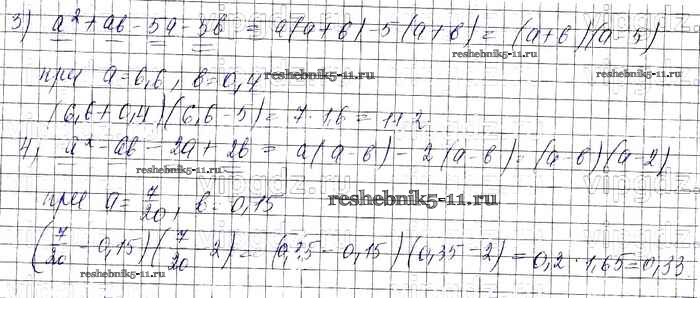 3) a² + ab - 5a - 5b = a(a+b) - 5(a+b) = (a+b)(a-5)
reshebnik5-11.ru
при a=6,6, b=0,4
reshebnik5-11.ru
(6,6+0,4)(6,6-5) = 7·1,6 = 11,2
4) a² - ab - 2a + 2b = a(a-b) - 2(a-b) = (a-b)(a-2)
reshebnik5-11.ru
при a = 7/20, b = 0,15
reshebnik5-11.ru
(7/20 - 0,15)(7/20 - 2) = (0,35 - 0,15)(0,35 - 2) = 0,2 · 1,65 = 0,33
reshebnik5-11.ru